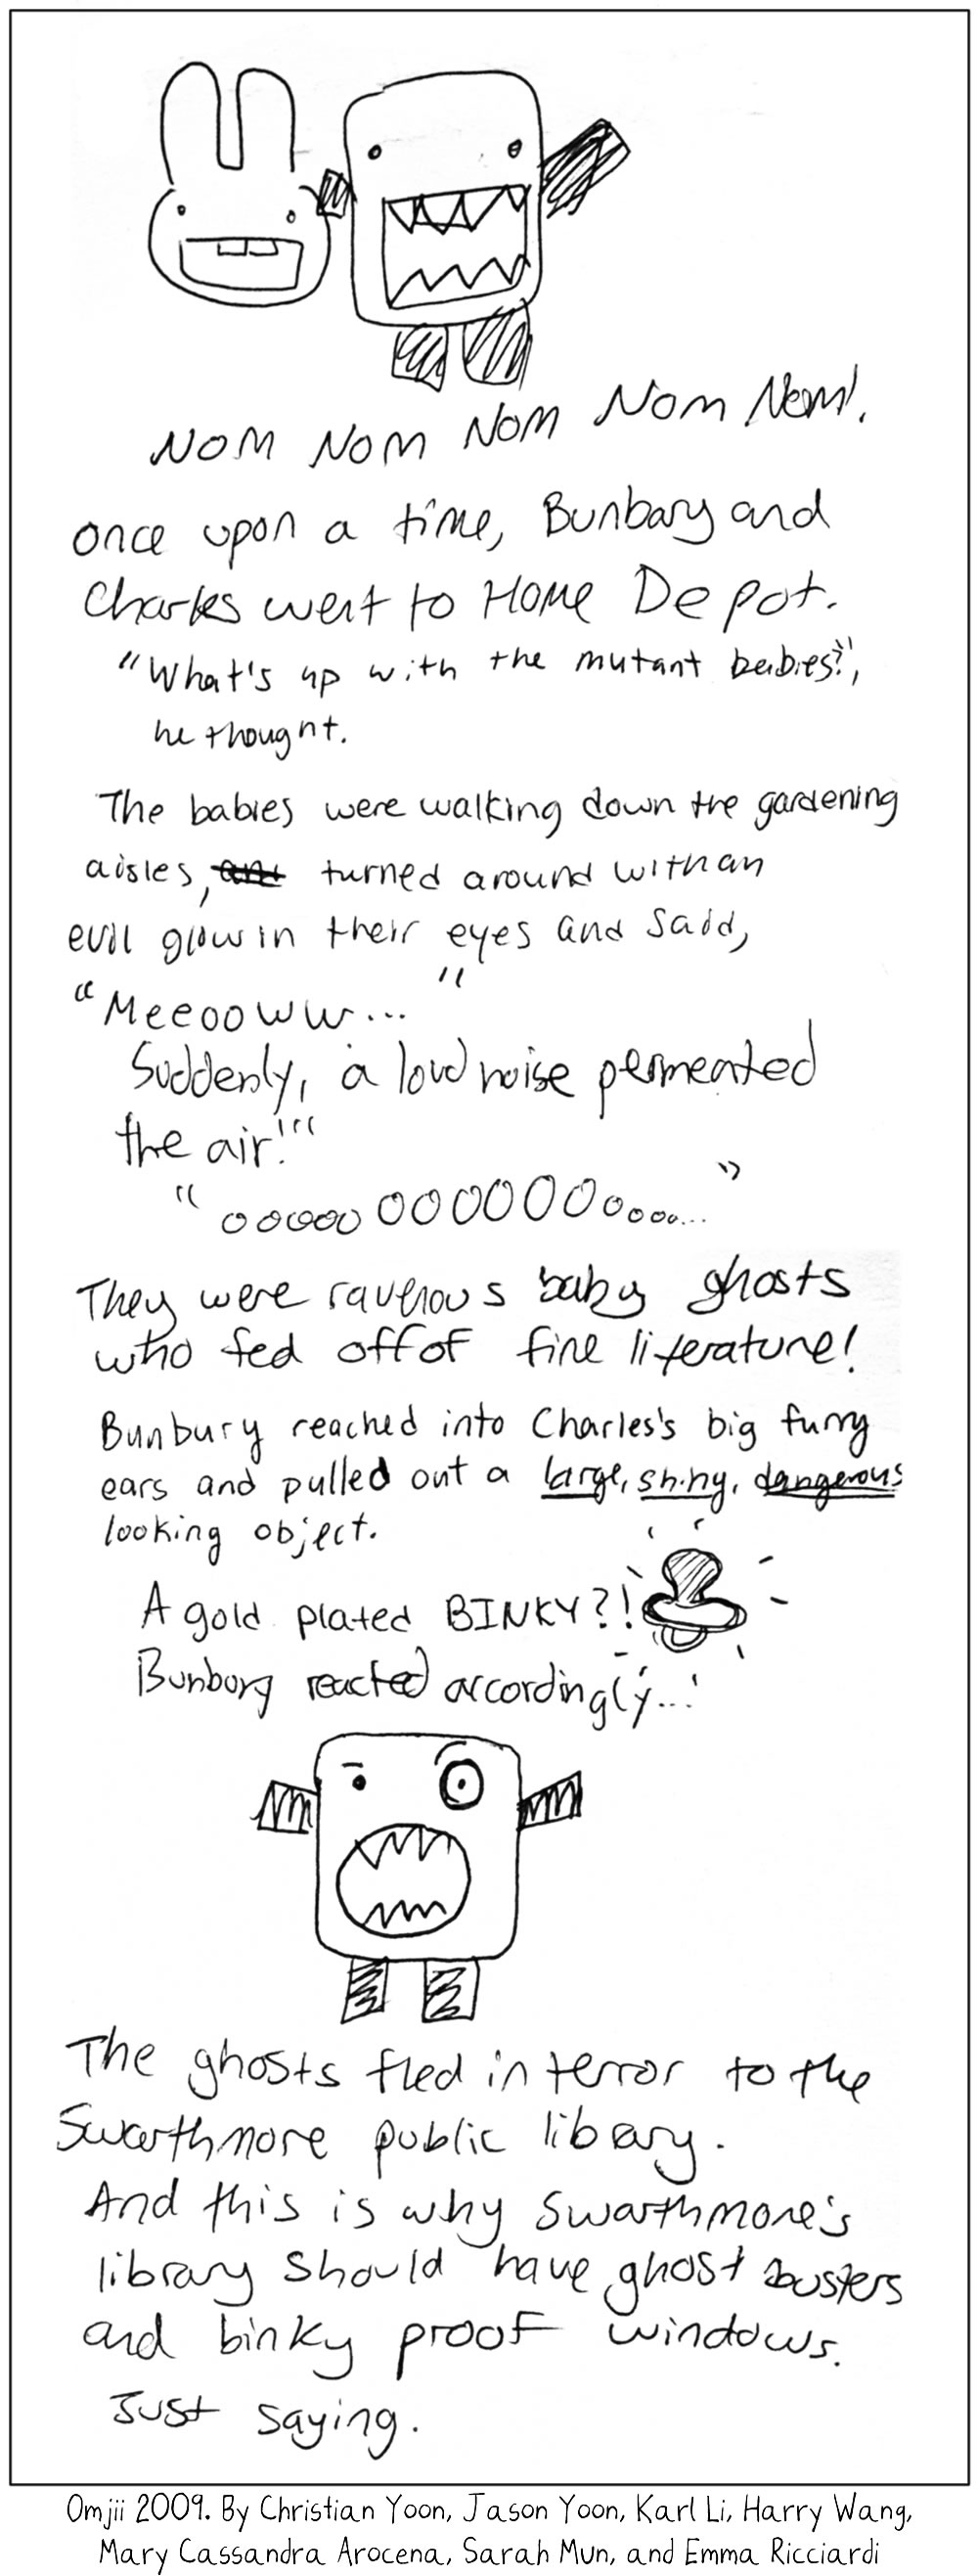 NOM NOM NOM NOM Nom!
once upon a time, Bunbary and
Charles went to Home Depot.
"What's up with the mutant babies?",
he thought.
The babies were walking down the gardening
aisles, and turned around with an
evil glow in their eyes and said,
"Meeooww..."
Suddenly, a loud noise permeated
the air!"
"ooooooOOOOOOoooo..."
They were ravenous baby ghosts
who fed off of fine literature!
Bunbury reached into Charles's big furry
ears and pulled out a large, shiny, dangerous
looking object.
A gold plated BINKY?!
Bunbury reacted accordingly...
The ghosts fled in terror to the
Swarthmore public library.
And this is why Swarthmore's
library should have ghost busters
and binky proof windows.
Just saying.
Omjii 2009. By Christian Yoon, Jason Yoon, Karl Li, Harry Wang,
Mary Cassandra Arocena, Sarah Mun, and Emma Ricciardi